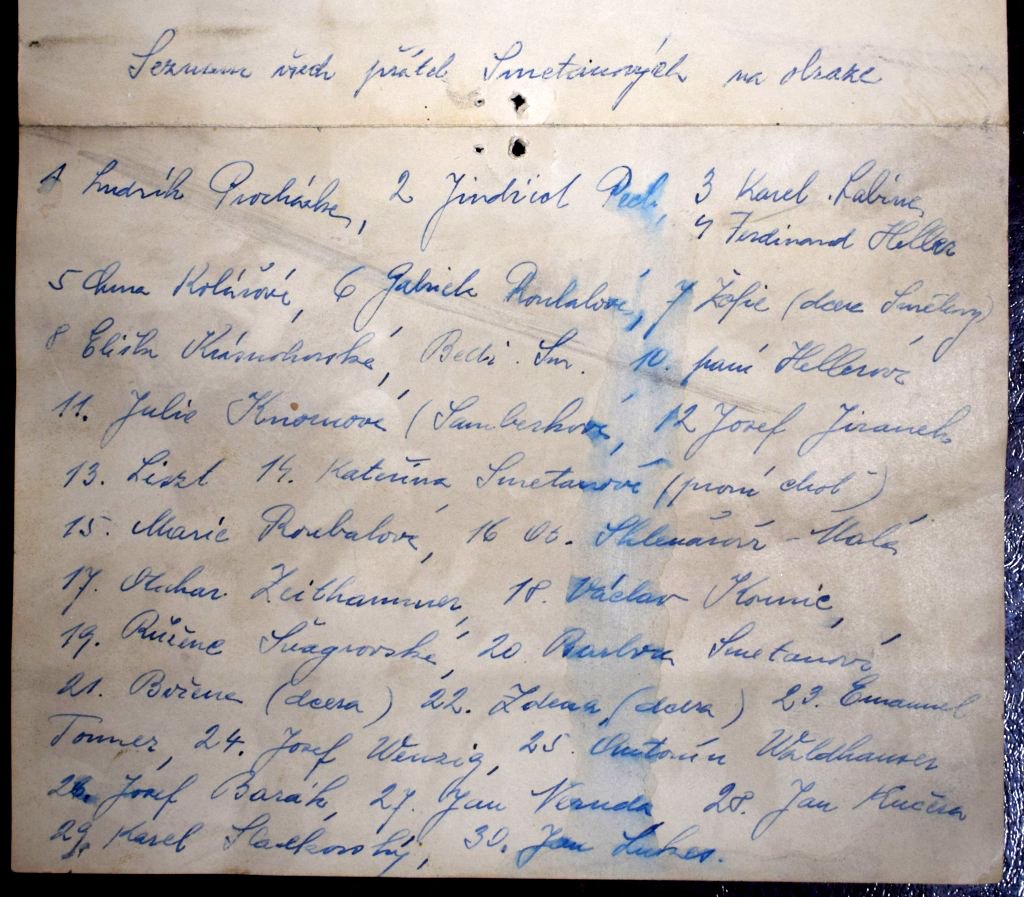 Seznam všech přátel Smetanových na obraze
1 Ludvík Procházka, 2 Jindřich Pech, 3 Karel Sabina,
4 Ferdinand Heller
5 Anna Kolářová, 6 Gabriela Roubalová, 7 Žofie (dcera Smetany)
8 Eliška Krásnohorská, Bedř. Sm. 10. paní Hellerová
11. Julie Knornová (Šamberková, 12 Josef Jiránek
13. Liszt 14. Kateřina Smetanová (první choť)
15. Marie Roubalová, 16 Ot. Sklenářová - Malá
17. Otakar Zeithammer, 18. Václav Kounic,
19. Růžena Švagrovská, 20 Barbora Smetanová,
21. Božena (dcera) 22. Zdena (dcera) 23. Emanuel
Tonner, 24. Josef Wenzig, 25. Antonín Waldhauser
26. Josef Barák, 27. Jan Neruda, 28. Jan Kučera
29. Karel Sladkovský, 30. Jan Lukes.